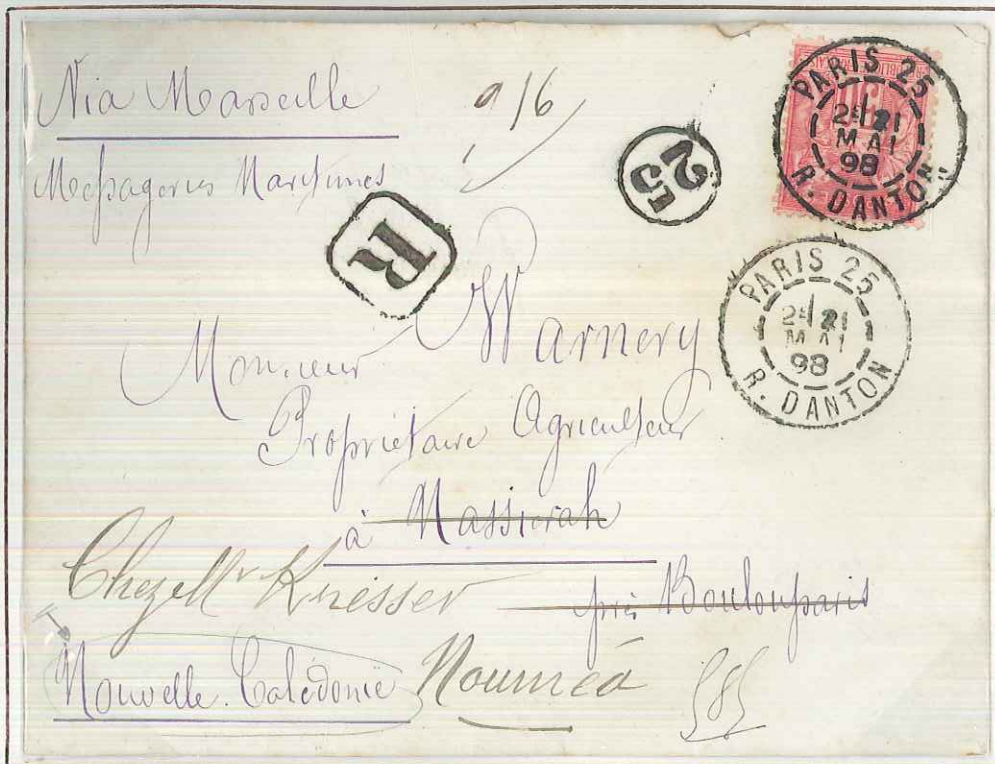 Via Marseille
916
Messageries Maritimes
R
25
PARIS 25
2E 21
MAI
98
R. DANTON
PARIS 25
2E 21
MAI
98
R. DANTON
Monsieur Warnery
Propriétaire Agriculteur
à Nassirah
Chez Mr Kresser près Bouloupais
Nouvelle Calédonie Nouméa